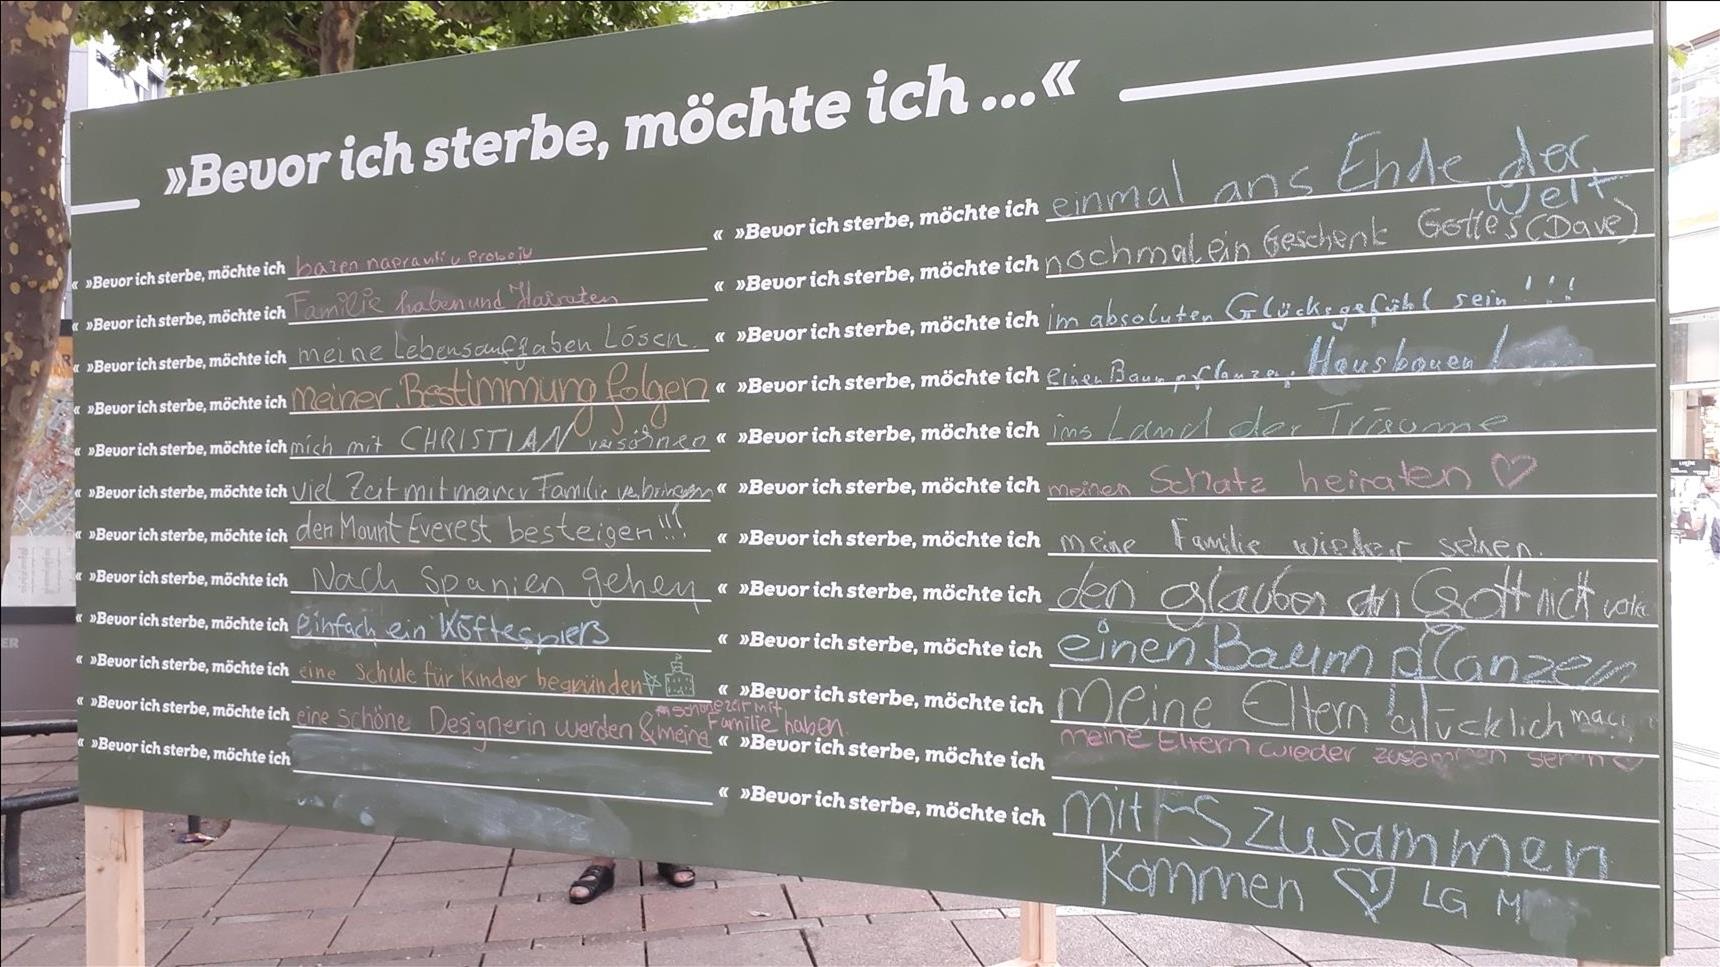 »Bevor ich sterbe, möchte ich ...«
»Bevor ich sterbe, möchte ich bazen napraviti u Proboju «
»Bevor ich sterbe, möchte ich Familie haben und Hairaten «
»Bevor ich sterbe, möchte ich meine Lebensaufgaben Lösen. «
»Bevor ich sterbe, möchte ich meiner Bestimmung folgen «
»Bevor ich sterbe, möchte ich mich mit CHRISTIAN versöhnen «
»Bevor ich sterbe, möchte ich viel Zeit mit meiner Familie verbringen «
»Bevor ich sterbe, möchte ich den Mount Everest besteigen!!! «
»Bevor ich sterbe, möchte ich Nach Spanien gehen «
»Bevor ich sterbe, möchte ich Einfach ein Köftespieß
»Bevor ich sterbe, möchte ich eine Schule für Kinder begründen «
»Bevor ich sterbe, möchte ich eine schöne Designerin werden & meine schöne zeit mit Familie haben. «
»Bevor ich sterbe, möchte ich «
»Bevor ich sterbe, möchte ich einmal ans Ende der
Welt
»Bevor ich sterbe, möchte ich nochmal ein Geschenk Gottes (Dave)
»Bevor ich sterbe, möchte ich im absoluten Glücksgefühl sein!!!
»Bevor ich sterbe, möchte ich einen Baum pflanzen, Haus bauen
»Bevor ich sterbe, möchte ich ins Land der Träume
»Bevor ich sterbe, möchte ich meinen Schatz heiraten ♡
»Bevor ich sterbe, möchte ich meine Familie wieder sehen.
»Bevor ich sterbe, möchte ich den glauben an Gott nicht
»Bevor ich sterbe, möchte ich einen Baum pflanzen
»Bevor ich sterbe, möchte ich Meine Eltern Glücklich
»Bevor ich sterbe, möchte ich meine Eltern wieder zusammen sehn ♡
»Bevor ich sterbe, möchte ich mit S zusammen
Kommen ♡ LG M